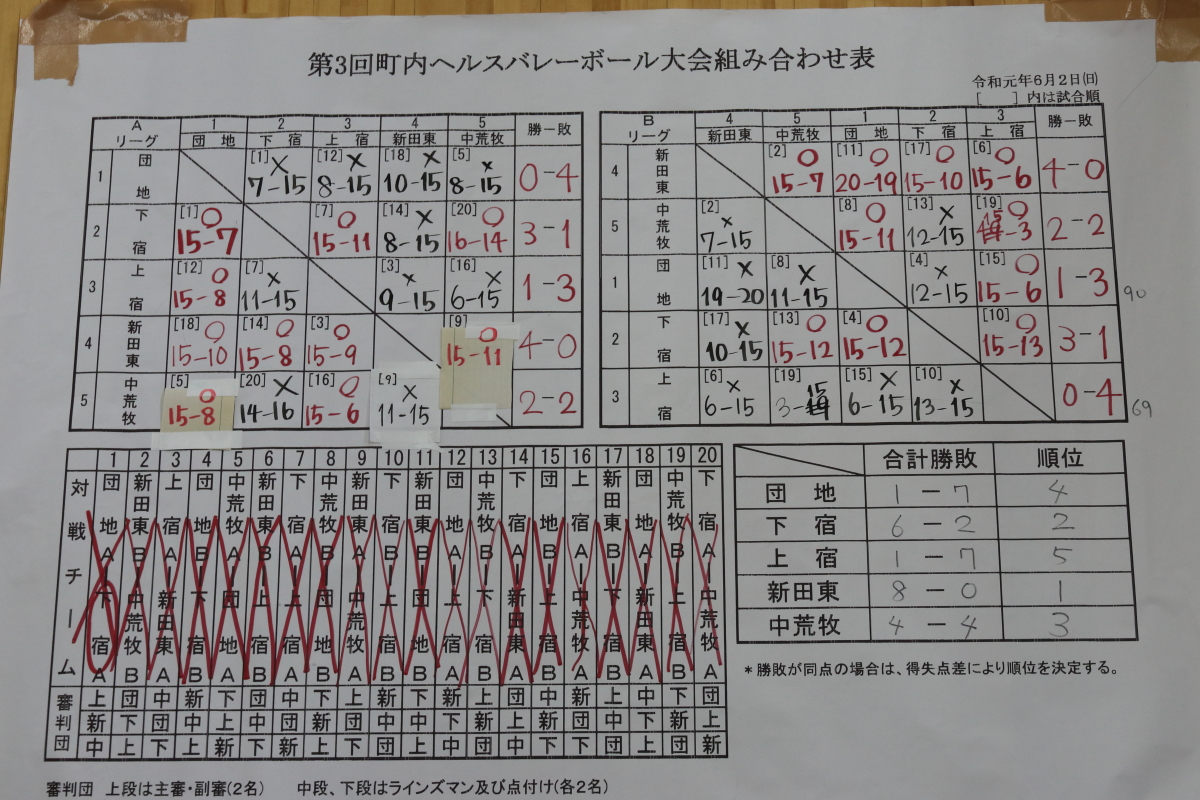 第3回町内ヘルスバレーボール大会組み合わせ表
令和元年6月2日(日)
[ ]内は試合順
A リーグ 1 団地 2 下宿 3 上宿 4 新田東 5 中荒牧 勝ー敗
1 団地 [1] × 7-15 [12] × 8-15 [18] × 10-15 [5] × 8-15 0-4
2 下宿 [1] ○ 15-7 [7] ○ 15-11 [14] × 8-15 [20] ○ 16-14 3-1
3 上宿 [12] ○ 15-8 [7] × 11-15 [3] × 9-15 [16] × 6-15 1-3
4 新田東 [18] ○ 15-10 [14] ○ 15-8 [3] ○ 15-9 [9] ○ 15-11 4-0
5 中荒牧 [5] ○ 15-8 [20] × 14-16 [16] ○ 15-6 [9] × 11-15 2-2
B リーグ 4 新田東 5 中荒牧 1 団地 2 下宿 3 上宿 勝ー敗
4 新田東 [2] ○ 15-7 [11] ○ 20-19 [17] ○ 15-10 [6] ○ 15-6 4-0
5 中荒牧 [2] × 7-15 [8] ○ 15-11 [13] × 12-15 [19] ○ 15-3 2-2
1 団地 [11] × 19-20 [8] × 11-15 [4] × 12-15 [15] ○ 15-6 1-3 90
2 下宿 [17] × 10-15 [13] ○ 15-12 [4] ○ 15-12 [10] ○ 15-13 3-1
3 上宿 [6] × 6-15 [19] 3-15 [15] × 6-15 [10] × 13-15 0-4 69
対戦チーム
1 団地A-下宿A
2 新田東B-中荒牧B
3 上宿A-新田東A
4 団地B-下宿B
5 中荒牧A-団地A
6 新田東B-上宿B
7 下宿A-上宿A
8 中荒牧B-団地B
9 新田東A-中荒牧A
10 下宿B-上宿B
11 新田東B-団地B
12 団地A-上宿A
13 中荒牧B-下宿B
14 下宿A-新田東A
15 団地B-上宿B
16 上宿A-中荒牧A
17 新田東B-下宿B
18 団地A-新田東A
19 中荒牧B-上宿B
20 下宿A-中荒牧A
審判団
上 団 中 新 下 団 中 下 上 新 下 新 上 団 中 下 団 中 下 団
新 下 団 中 上 中 団 新 団 中 団 中 新 上 新 団 中 下 団 上
中 上 下 上 新 下 新 上 下 団 上 中 団 中 下 下 団 上 団 新
合計勝敗 順位
団地 1-7 4
下宿 6-2 2
上宿 1-7 5
新田東 8-0 1
中荒牧 4-4 3
*勝敗が同点の場合は、得失点差により順位を決定する。
審判団 上段は主審・副審(2名) 中段、下段はラインズマン及び点付け(各2名)